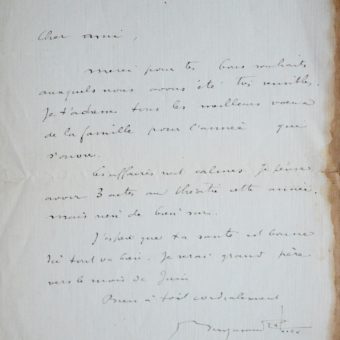 Cher ami,
merci pour tes bons souhaits
auxquels nous avons été très sensibles.
Je t'adresse tous les meilleurs voeux
de la famille pour l'année que
s'ouvre.
Les affaires sont calmes. Je pense
avoir 3 actes au théâtre cette année.
mais rien de bien sur.
J'espère que ta santé est bonne
Ici tout va bien. Je serai grand père
vers le mois de Juin
Bien à toi cordialement